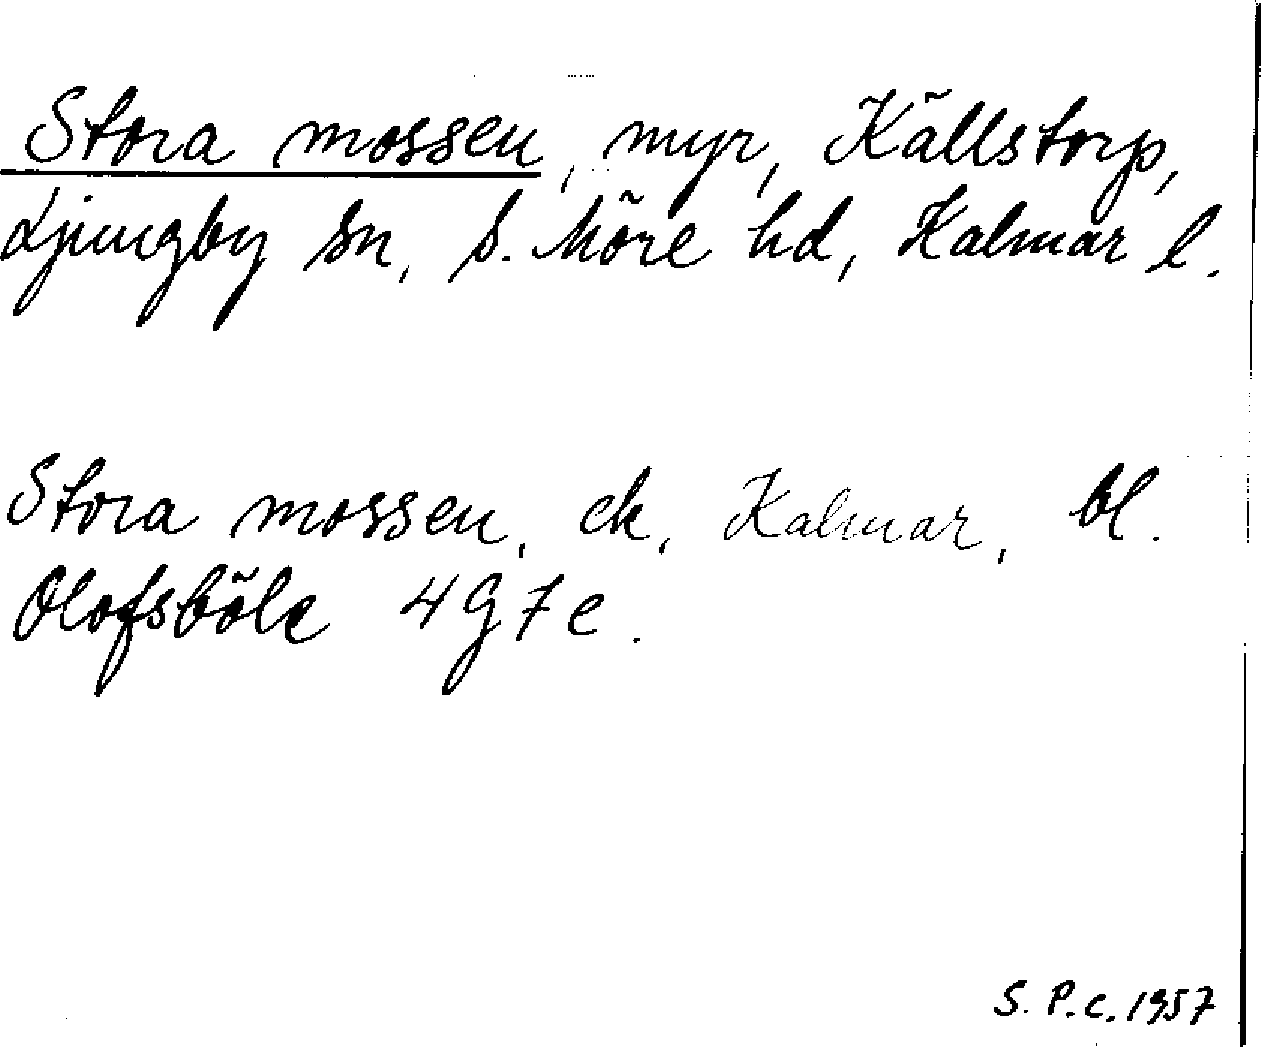 Stora mossen, myr, Källstorp,
Ljungby sn, S. Möre hd, Kalmar l.
Stora mossen, ek, Kalmar, bl.
Olofsböle 4G7e.
S. P. C. 1957